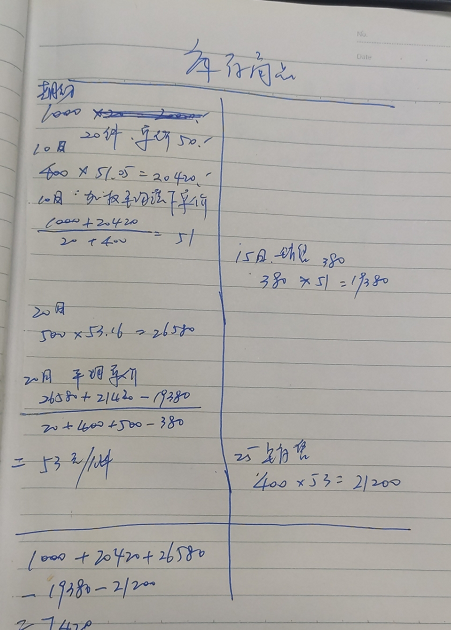 库存商品
期初
1000
20件 单价50.
10日
400 × 51.05 = 20420.
10日 加权平均法下单价
1000 + 20420
20 + 400
= 51
15日 销售 380
380 × 51 = 19380
20日
500 × 53.16 = 26580
20日 平均单价
26580 + 21420 - 19380
20 + 400 + 500 - 380
= 53元/件
25 销售
400 × 53 = 21200
1000 + 20420 + 26580
- 19380 - 21200
= 7420